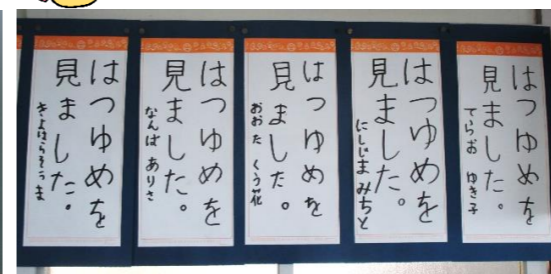 はつゆめを
見ました。
てらお ゆき子
はつゆめを
見ました。
にしじま みちと
はつゆめを
見ました。
おおた くう花
はつゆめを
見ました。
なんば ありさ
はつゆめを
見ました。
きよはらそうま